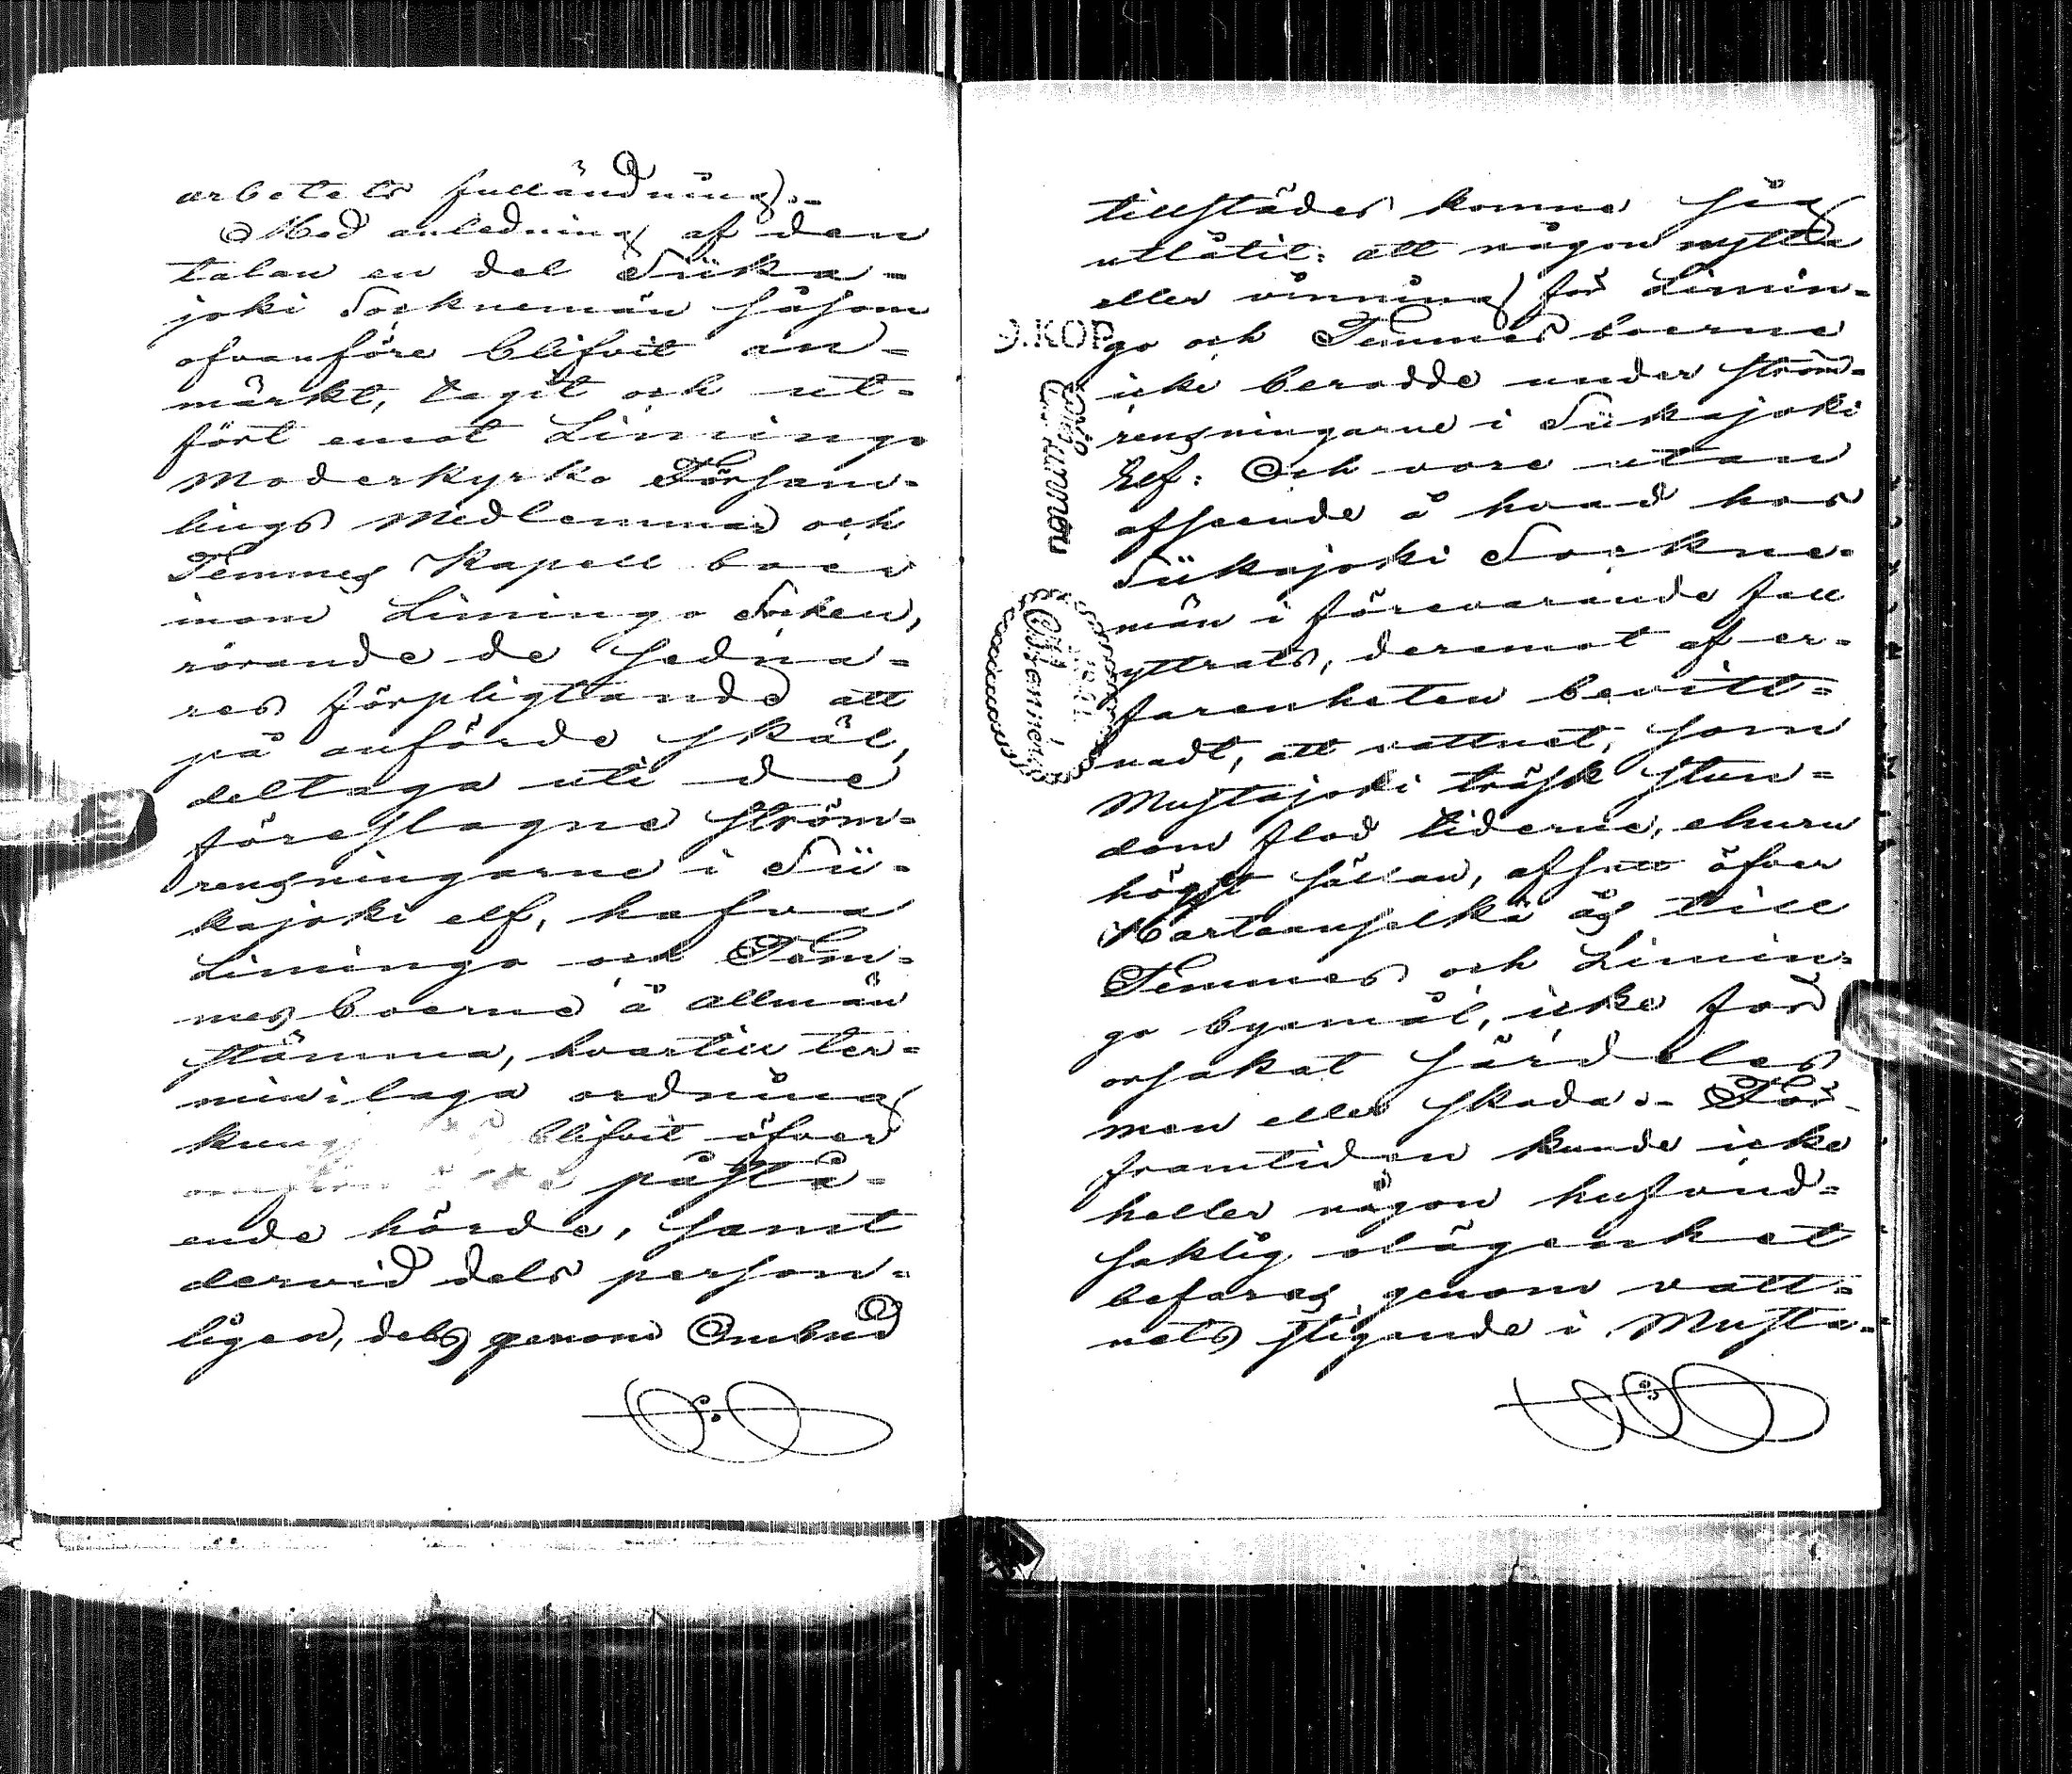 arbetets fulländning.-
Med anledning af den
talan en del Siika=
joki Sockneman såsom
ofvanföre blifvit an=
märkt, tagit och ut=
fört emot Limingo
Moderkyrko Församl-
lings Medlemmar och
Temmes Kapell boer
inom Limingo Socken,
rörande de sedna=
res förpligtande att
på anförde skäl,
deltaga uti de
föreslagne ström=
rensningarne i Sii=
kajoki elf, hafva
Limingo och Tem=
mes boerne å allmän
stämma, hvartill ter=
min i laga ordning
blifvit öfver
påstå=
ende hörde, samt
dervid dels person=
ligen, dels genom Ombud
tillstädes komne sig
utlåtit: att någon nytta
eller vinning för Limin=
go och Temmes boerne
icke berodde under ström=
rensningarne i Siikajoki
Elf: Och vore utan
afseende å hvad hos
Siikajoki Sockne=
män i förevarande fall
yttrats, deremot af er=
farenheten bevitt=
nadt, att vattnet, som
Mustajoki träsk stun=
dom flod tiderne, ehuru
högst sällan, afsatt öfver
Martaanselkä ås till
Temmes och Limin=
go byemål, icke för
orsakat särdeles
men eller skada.- För
framtiden kunde icke
heller någon hufvud=
saklig olägenhet
befaras genom vatt=
nets stigande i Musta=
9.KOP.